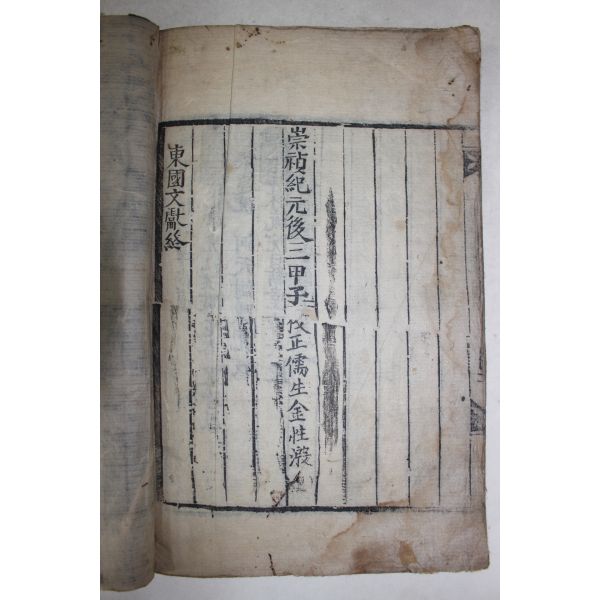 崇禎紀元後三甲子校正儒生金性溵
東國文獻終